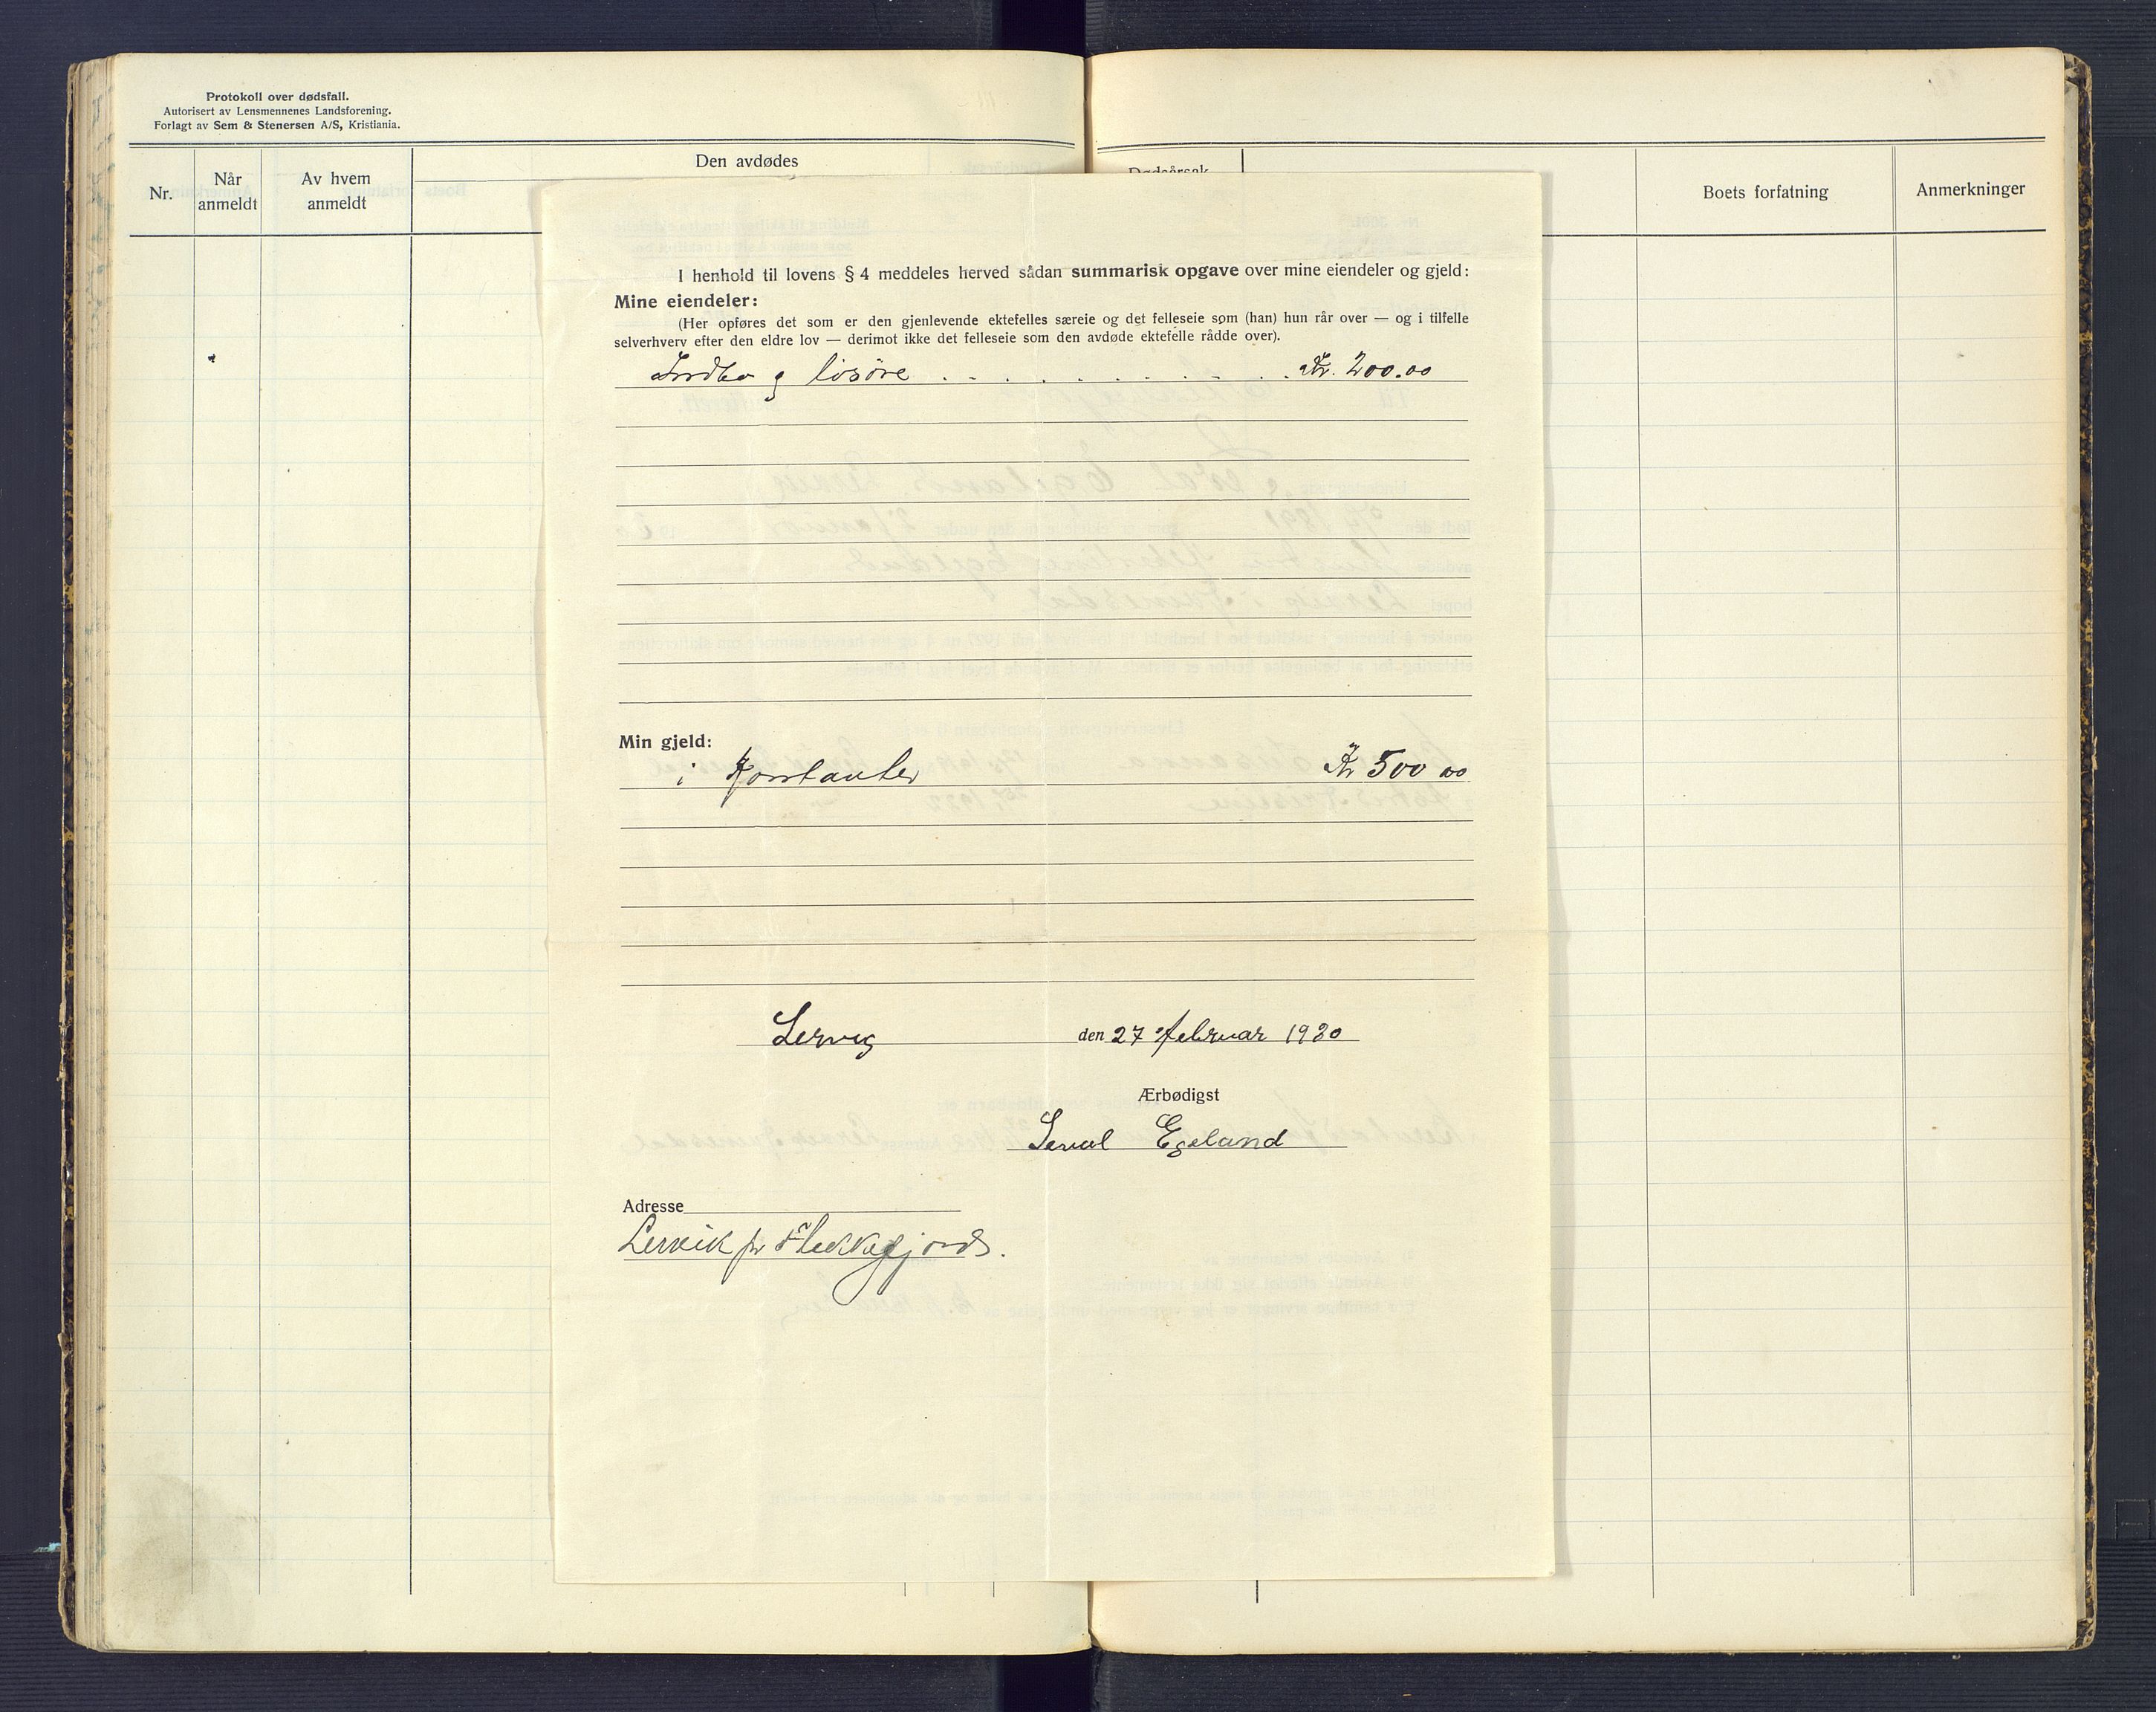 Protokoll over dødsfall.
Autorisert av Lensmennenes Landsforening.
Forlagt av Sem & Stenersen A/S, Kristiania.
Nr.
Når anmeldt
Av hvem anmeldt
Den avdødes
Dødsårsak
Boets forfatning
Anmerkninger
I henhold til lovens § 4 meddeles herved sådan summarisk opgave over mine eiendeler og gjeld:
Mine eiendeler:
(Her opføres det som er den gjenlevende ektefelles særeie og det felleseie som (han) hun rår over — og i tilfelle
selverhverv efter den eldre lov — derimot ikke det felleseie som den avdøde ektefelle rådde over).
Indbo og lösöre . . . . . . . . . . Kr. 200.00
Min gjeld:
i Kontanter Kr 500 00
Lervig den 27 februar 1930
Ærbødigst
Egeland
Adresse
Lervik pr Flekkefjord.